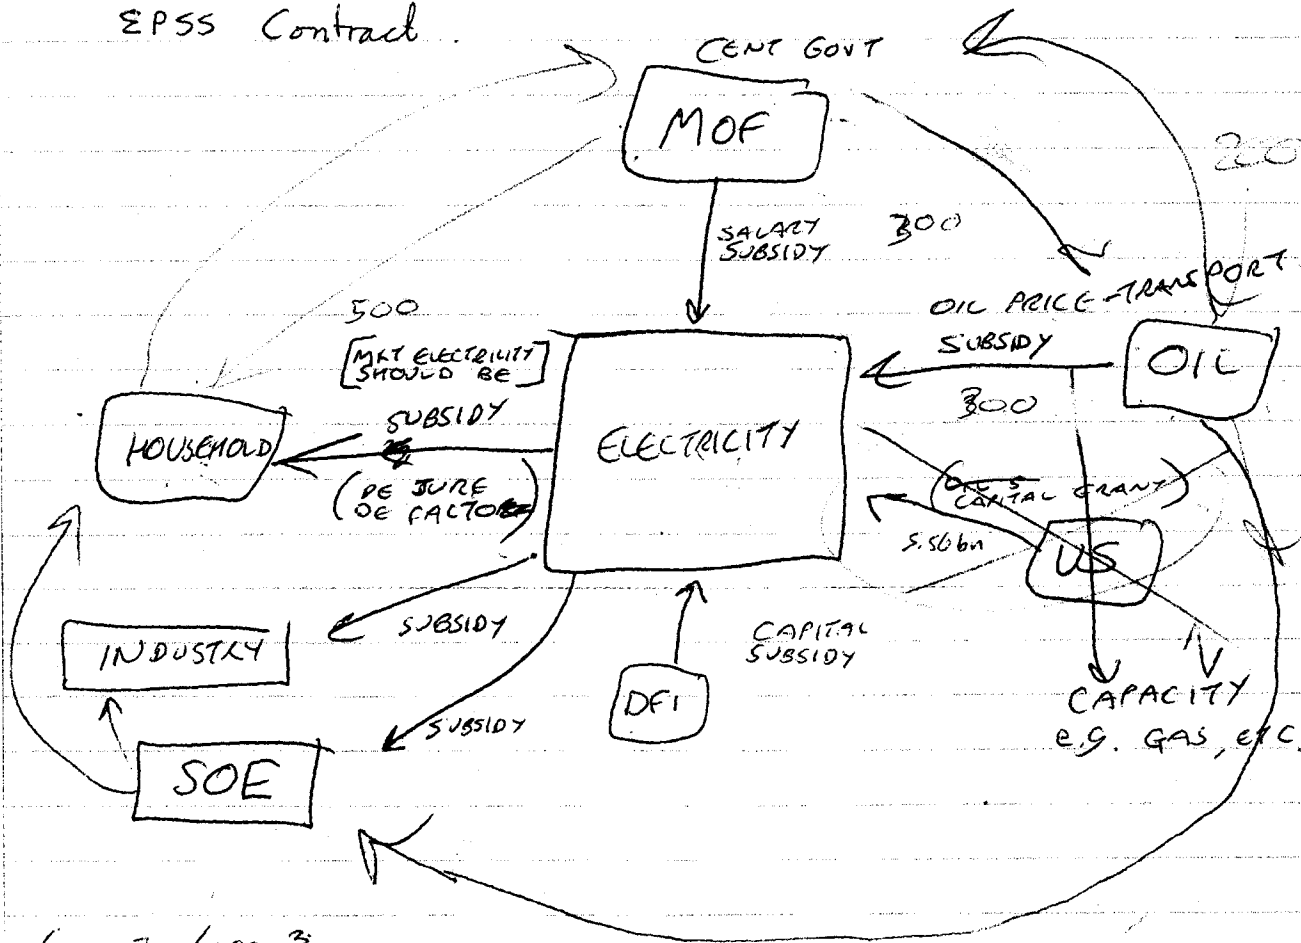 EPSS Contract.
CENT GOVT
MOF
200
SALARY
SUBSIDY
300
OIL PRICE-TRANSPORT
SUBSIDY
OIL
500
[MKT ELECTRICITY
SHOULD BE]
SUBSIDY
HOUSEHOLD
(DE JURE
DE FACTO)
ELECTRICITY
300
CAPITAL GRANT)
5.56bn
US
SUBSIDY
INDUSTRY
CAPITAL
SUBSIDY
DFI
CAPACITY
e.g. GAS, etc.
SUBSIDY
SOE